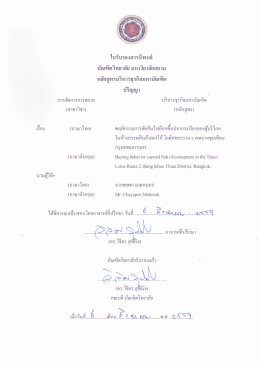 ใบรับรองสารนิพนธ์
บัณฑิตวิทยาลัย มหาวิทยาลัยสยาม
หลักสูตรบริหารธุรกิจมหาบัณฑิต
ปริญญา
การจัดการการตลาด บริหารธุรกิจมหาบัณฑิต
(สาขาวิชา) (หลักสูตร)
เรื่อง (ภาษาไทย) พฤติกรรมการตัดสินใจเลือกซื้อปลากระป๋องของผู้บริโภค
ในห้างสรรพสินค้าเทสโก้ โลตัสพระราม 2 เขตบางขุนเทียน
กรุงเทพมหานคร
(ภาษาอังกฤษ) Buying behavior canned fish of consumers in the Tesco
Lotus Rama 2, Bang Khun Thian District, Bangkok.
นามผู้วิจัย
(ภาษาไทย) นายชยพล
(ภาษาอังกฤษ) Mr. Chayapon
ได้พิจารณาเห็นชอบโดยอาจารย์ที่ปรึกษา วันที่ 6 สิงหาคม 2557
อาจารย์ที่ปรึกษา
บัณฑิตวิทยาลัยรับรองแล้ว
คณบดี บัณฑิตวิทยาลัย
เมื่อวันที่ 6 เดือน สิงหาคม พ.ศ. 2557